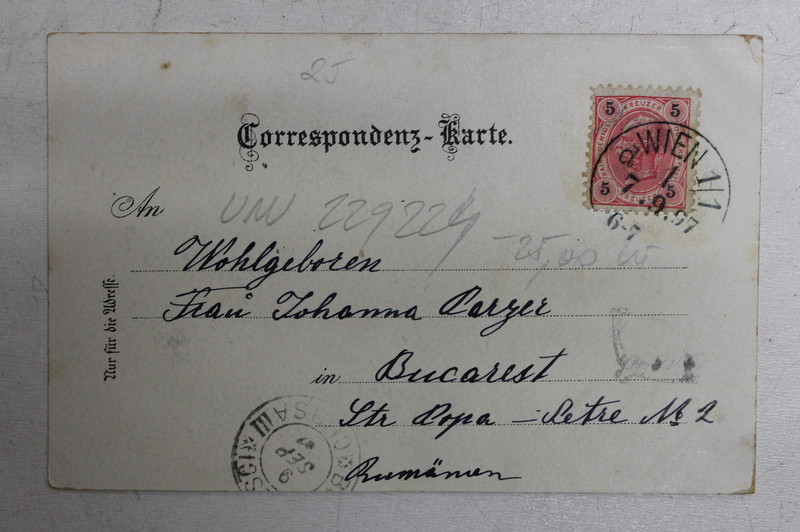 25
Correspondenz-Karte.
5 KREUZER 5
5 5
WIEN 1/1
7. 9. 97
6-7
An
UW 229224
-25,00
Wohlgeboren
Frau Johanna Carzer
Nur für die Adresse.
in Bucarest
Str Popa - Petre № 2
Rumänien
9
SEP
97
III